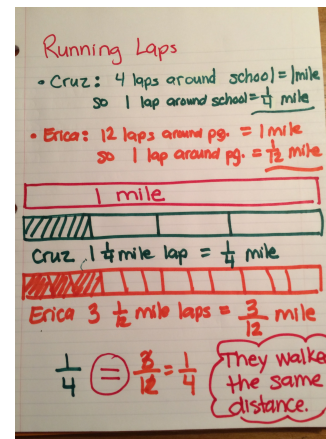 Running Laps
• Cruz: 4 laps around school = 1mile
so 1 lap around school = 1/4 mile
• Erica: 12 laps around pg. = 1 mile
so 1 lap around pg. = 1/12 mile
1 mile
Cruz 1 1/4 mile lap = 1/4 mile
Erica 3 1/12 mile laps = 3/12 mile
1/4 = 3/12 = 1/4
They walked
the same
distance.